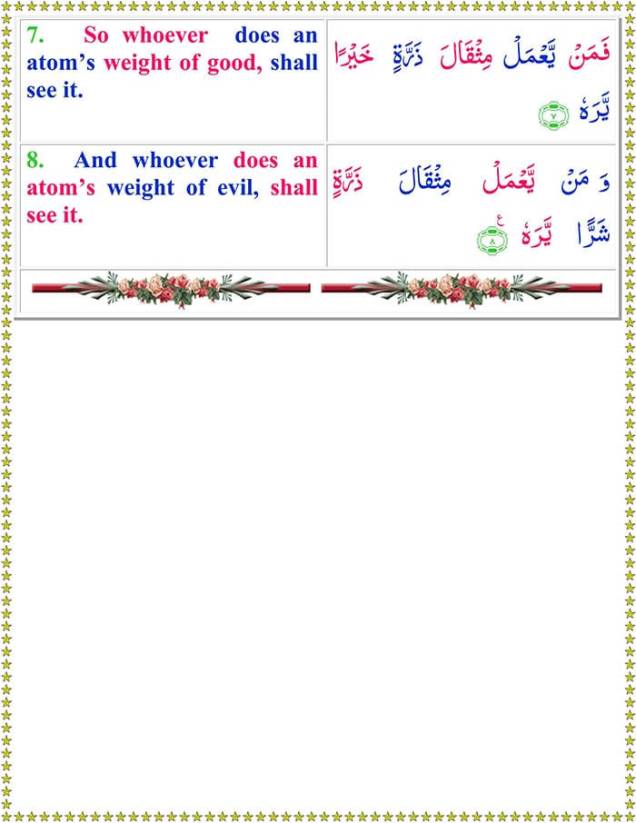 7. So whoever does an
atom’s weight of good, shall
see it.
فَمَنۡ يَّعۡمَلۡ مِثۡقَالَ ذَرَّةٍ خَيۡرًا
يَّرَهٗ ؕ‏ ﴿۷﴾
8. And whoever does an
atom’s weight of evil, shall
see it.
وَ مَنۡ يَّعۡمَلۡ مِثۡقَالَ ذَرَّةٍ
شَرًّا يَّرَهٗ ﴿۸﴾ ع